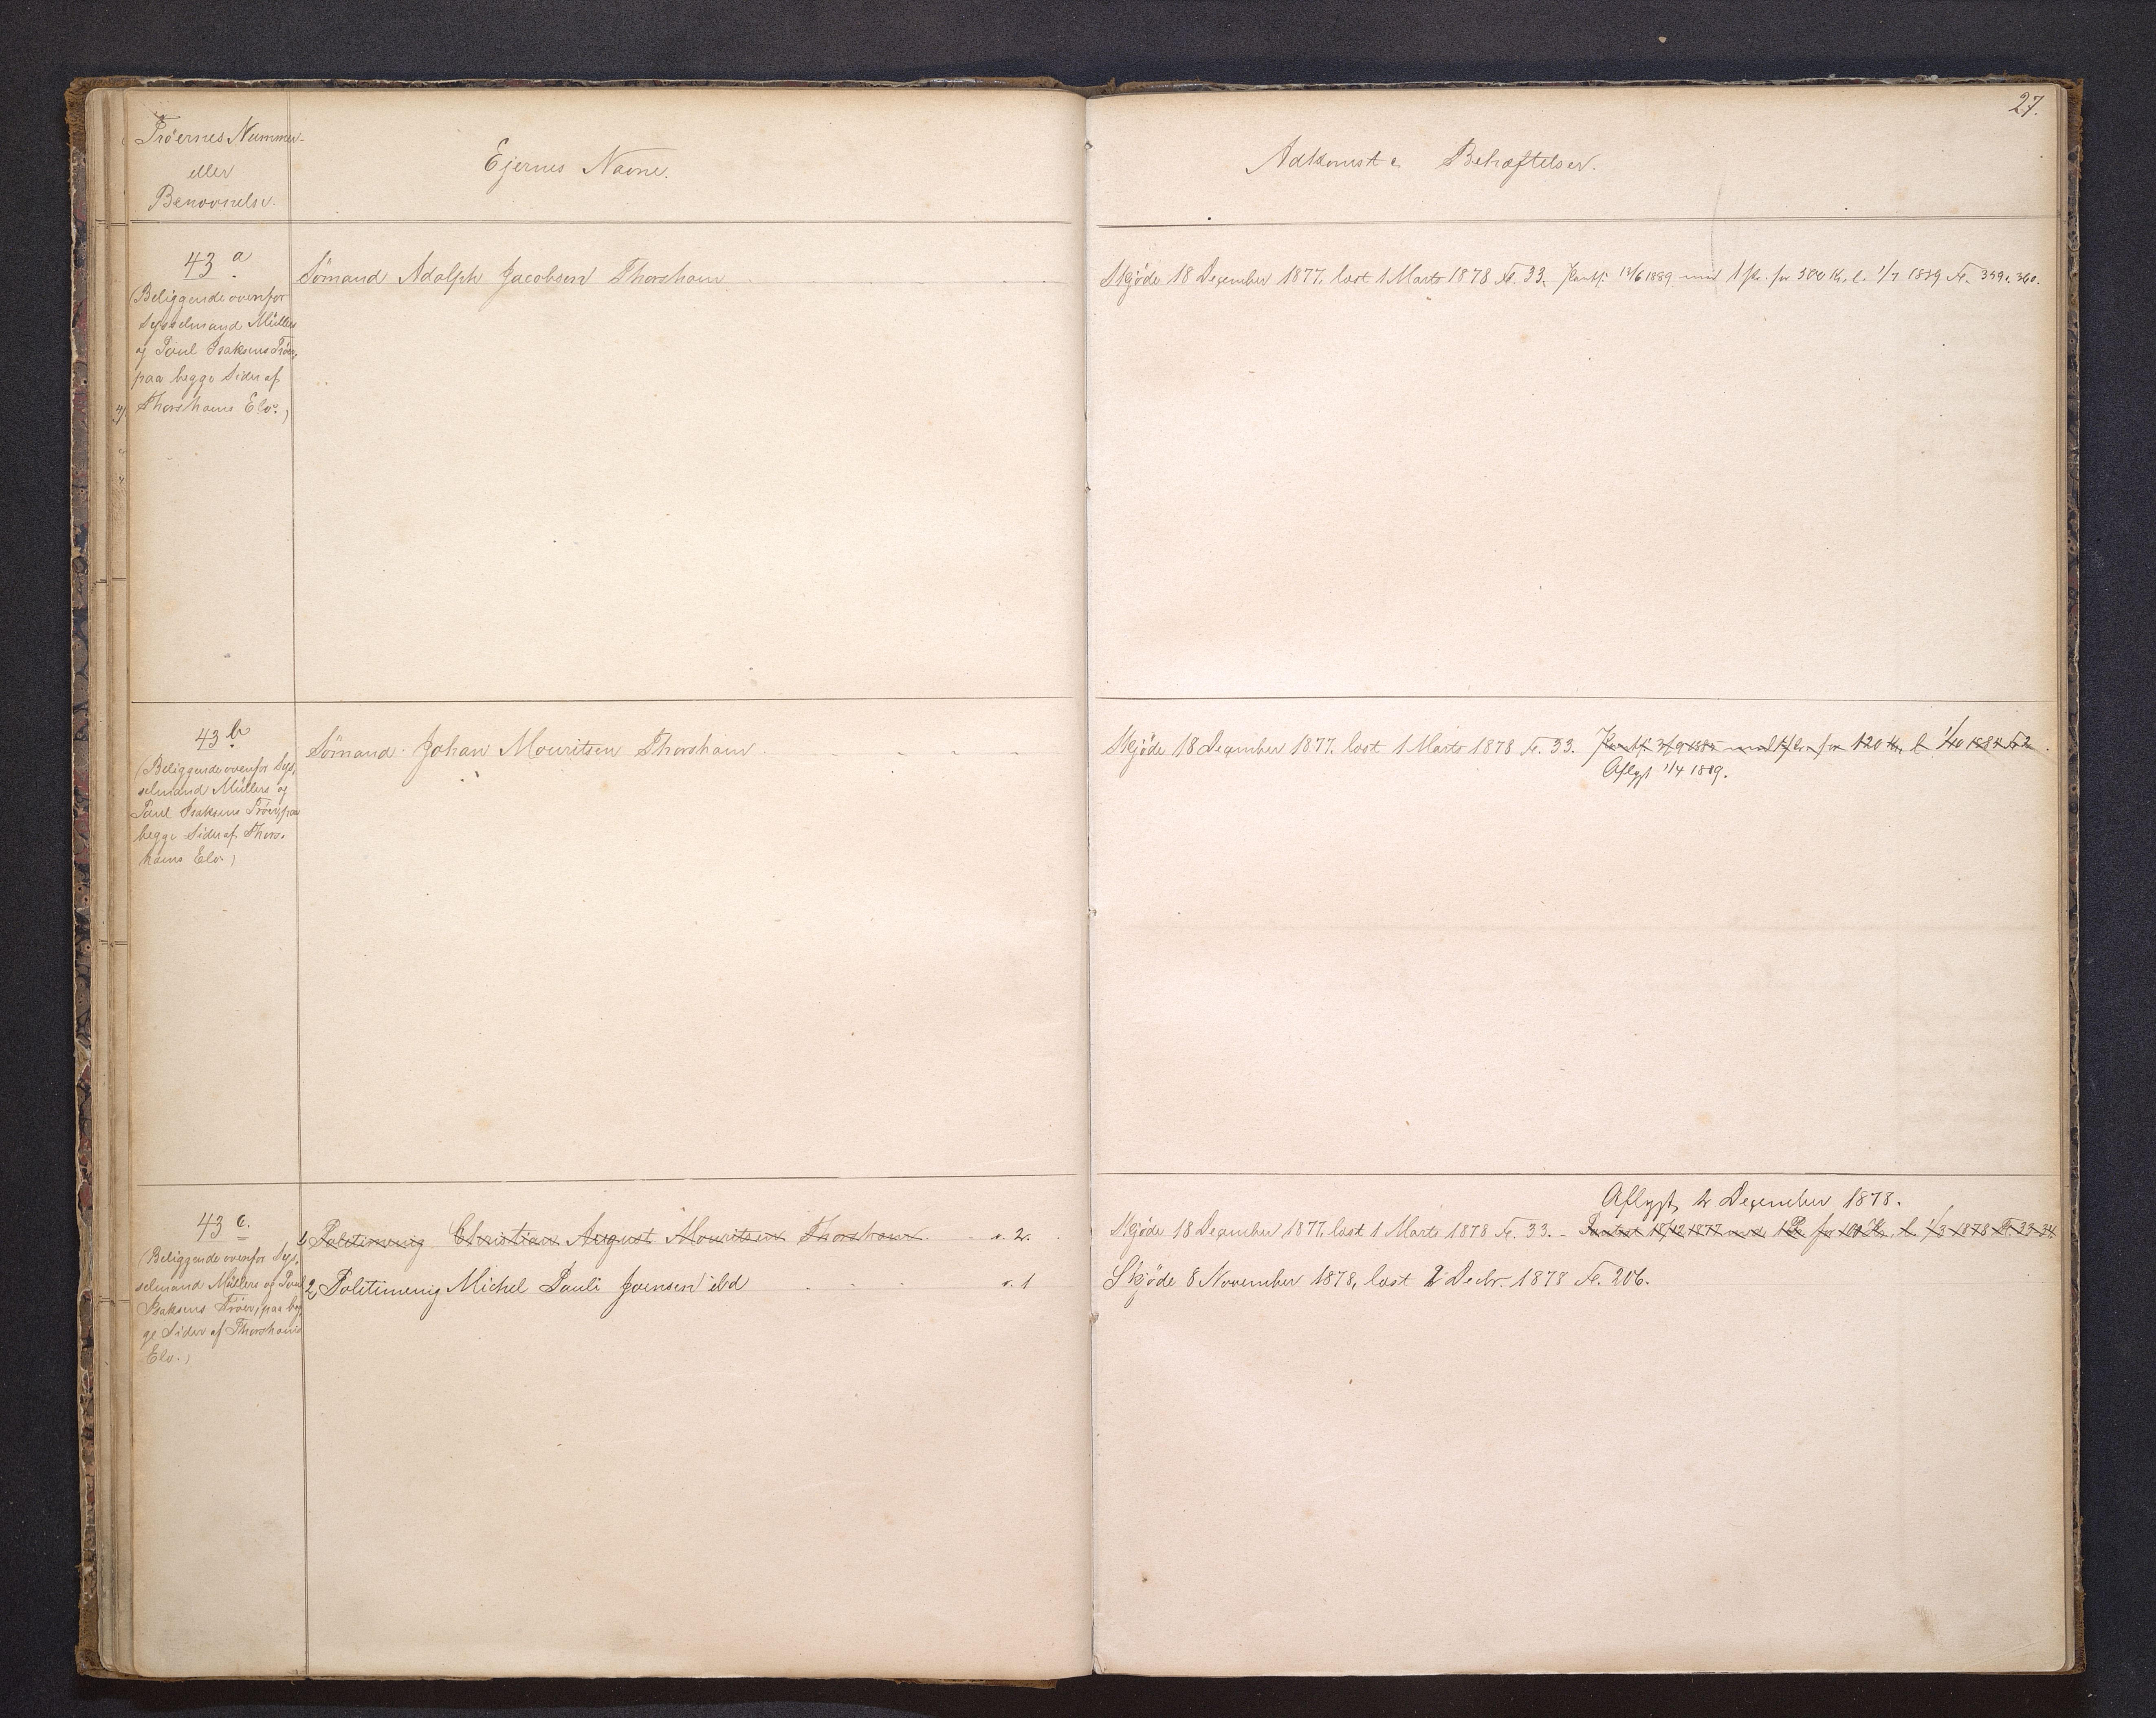 27.
Tröernes Nummer
eller
Benævnelse.
Ejernes Navne.
Adkomst & Behæftelser.
43 a
(Beliggende ovenfor
Sysselmand Müllers
og Poul Isaksens Tröer,
paa begge Sider af
Thorshavns Elv.)
Sömand Adolph Jacobsen Thorshavn
Skjöde 18 December 1877, læst 1 Marts 1878 Fr. 33. Pantf. 13/6 1889 med 1 Pr. for 500 Kr., l. 1/7 1889 Fr. 359 & 360.
43 b
(Beliggende ovenfor Sys-
selmand Müllers og
Poul Isaksens Tröer, paa
begge Sider af Thors-
havns Elv.)
Sömand Johan Mouritsen Thorshavn
Skjöde 18 December 1877, læst 1 Marts 1878 Fr. 33. Pantf. 3/9 1885 med 1 Pr. for 120 Kr., l. 1/10 1885 Fr. 2
Aflyst 1/4 1889.
43 c.
(Beliggende ovenfor Sys-
selmand Müllers og Poul
Isaksens Tröer, paa beg-
ge Sider af Thorshavns
Elv.)
1 Politimenig Christian August Mouritsen Thorshavn v. 2.
2 Politimenig Michel Pauli Joensen ibd v. 1
Aflyst 2 December 1878.
Skjöde 18 December 1877, læst 1 Marts 1878 Fr. 33. - Pantf. 18/12 1877 med 1 Pr. for 100 Kr., l. 1/3 1878 Fr. 33-34
Skjöde 8 November 1878, læst 2 Decbr. 1878 Fr. 206.